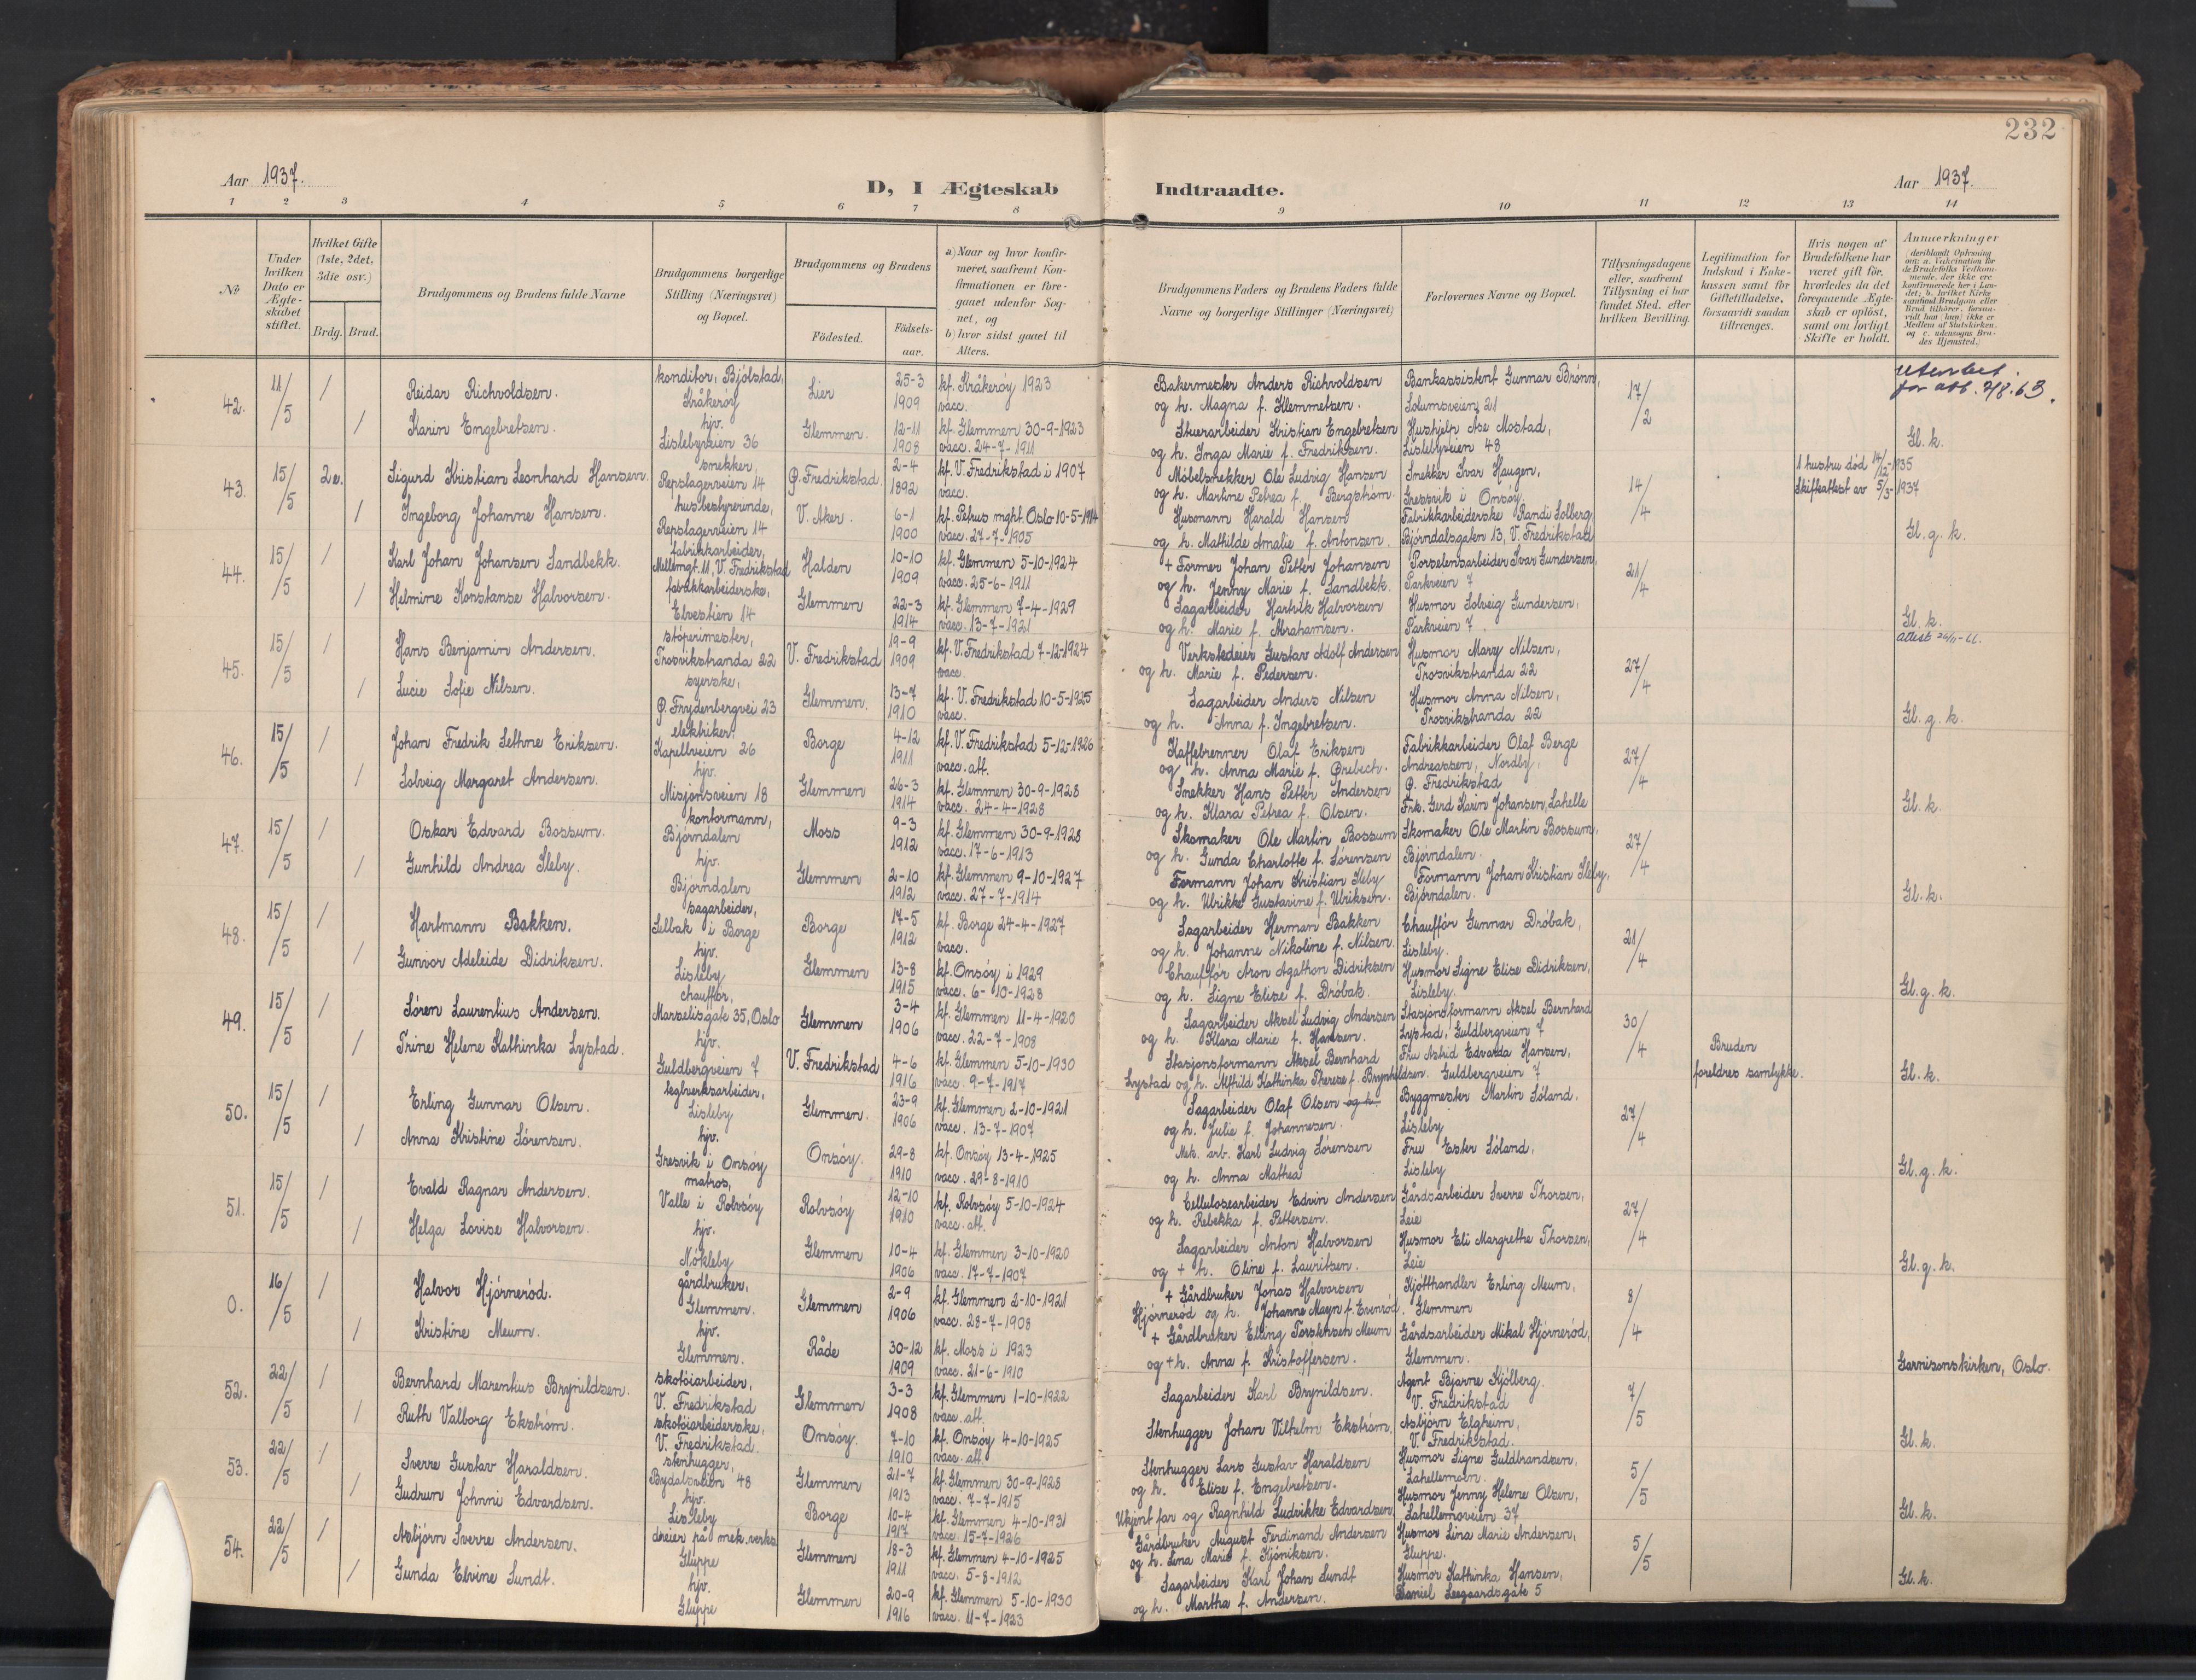 232
Aar 1937.
D, I Ægteskab Indtraadte.
Aar 1937.
1 2 3 4 5 6 7 8 9 10 11 12 13 14
№
Under hvilken Dato er Ægteskabet stiftet.
Hvilket Gifte (1ste, 2det, 3die osv.)
Brdg. Brud.
Brudgommens og Brudens fulde Navne
Brudgommens borgerlige Stilling (Næringsvei) og Bopæl.
Brudgommens og Brudens
Födested.
Födsels-aar.
a) Naar og hvor konfirmeret, saafremt Konfirmationen er foregaaet udenfor Sognet, og
b) hvor sidst gaaet til Alters.
Brudgommens Faders og Brudens Faders fulde Navne og borgerlige Stillinger (Næringsvei)
Forlovernes Navne og Bopæl.
Tillysningsdagene eller, saafremt Tillysning ei har fundet Sted, efter hvilken Bevilling.
Legitimation for Indskud i Enkekassen samt for Giftetilladelse, forsaavidt saadan tiltrænges.
Hvis nogen af Brudefolkene har været gift för, hvorledes da det foregaaende Ægteskab er oplöst, samt om lovligt Skifte er holdt.
Anmærkninger
42. 11/5 / Reidar Richvoldsen. konditor, Bjölstad, Kråkeröy Lier 25-3 1909 kf. Kråkeröy 1923 vacc. Bakermester Anders Richvoldsen og h. Magna f. Klemmetsen. Bankassistent Gunnar Brönn, Solumsveien 21 17/2
/ Karin Engebretsen. hjv. Lislebyveien 36 Glemmen. 12-11 1908 kf. Glemmen 30-9-1923 vacc. 24-7-1911 Stuerarbeider Kristian Engebretsen og h. Inga Marie f. Fredriksen. Hushjelp Åse Mostad, Lislebyveien 48 Gl. k.
43. 15/5 2e. Sigurd Kristian Leonhard Hansen. snekker, Repslagerveien 14 Ø. Fredrikstad 2-4 1892 kf. V. Fredrikstad i 1907 vacc. Möbelsnekker Ole Ludvig Hansen og h. Martine Petrea f. Bergström. Snekker Ivar Haugen, Gressvik i Onsöy. 14/4 1 hustru död 14/12-1935 Skifteattest av 5/3-1937
/ Ingeborg Johanne Hansen. husbestyrerinde, Repslagerveien 14 V. Aker. 6-1 1900 kf. Petrus mght. Oslo 10-5-1914 vacc. 27-7-1905 Husmann Harald Hansen og h. Mathilde Amalie f. Antonsen. Fabrikkarbeiderske Randi Solberg, Björndalsgaten 13, V. Fredrikstad Gl. g. k.
44. 15/5 / Karl Johan Johansen Sandbekk. fabrikkarbeider, Mellemgt. 11, V. Fredrikstad Halden 10-10 1909 kf. Glemmen 5-10-1924 vacc. 25-6-1911 + Former Johan Petter Johansen og h. Jenny Marie f. Sandbekk. Porselensarbeider Ivar Gundersen, Parkveien 7 21/4
/ Helmine Konstanse Halvorsen. fabrikkarbeiderske, Elvestien 14 Glemmen 22-3 1914 kf. Glemmen 7-4-1929 vacc. 13-7-1921 Sagarbeider Hartvik Halvorsen og h. Marie f. Abrahamsen. Husmor Solveig Gundersen, Parkveien 7. Gl. k.
45. 15/5 / Hans Benjamin Andersen. stöperimester, Trosvikstranda 22 V. Fredrikstad 19-9 1909 kf. V. Fredrikstad 7-12-1924 vacc. Verkstedeier Gustav Adolf Andersen og h. Marie f. Pedersen. Husmor Mary Nilsen, Trosvikstranda 22 27/4
/ Lucie Sofie Nilsen. syerske, Ø. Frydenbergvei 23 Glemmen. 13-7 1910 kf. V. Fredrikstad 10-5-1925 vacc. Sagarbeider Anders Nilsen og h. Anna f. Ingebretsen. Husmor Anna Nilsen, Trosvikstranda 22 Gl. g. k.
46. 15/5 / Johan Fredrik Sethne Eriksen. elektriker, Kapellveien 26 Borge 4-12 1911 kf. V. Fredrikstad 5-12-1926 vacc. att. Kaffebrenner Olaf Eriksen og h. Anna Marie f. Ørebech. Fabrikkarbeider Olaf Berge Andreassen, Nordby, Ø. Fredrikstad 27/4
/ Solveig Margaret Andersen. hjv. Misjonsveien 18 Glemmen 26-3 1914 kf. Glemmen 30-9-1928 vacc. 24-4-1928 Snekker Hans Petter Andersen og h. Klara Petrea f. Olsen. Frk. Gerd Karin Johansen, Lahelle Gl. k.
47. 15/5 / Oskar Edvard Bossum. kontormann, Björndalen Moss 9-3 1912 kf. Glemmen 30-9-1928 vacc. 17-6-1913 Skomaker Ole Martin Bossum og h. Gunda Charlotte f. Sörensen Skomaker Ole Martin Bossum, Björndalen. 27/4
/ Gunhild Andrea Ileby. hjv. Björndalen Glemmen 2-10 1912 kf. Glemmen 9-10-1927 vacc. 27-7-1914 Formann Johan Kristian Ileby og h. Ulrikke Gustavine f. Ulriksen. Formann Johan Kristian Ileby, Björndalen. Gl. k.
48. 15/5 / Hartmann Bakken. sagarbeider, Selbak i Borge Borge 17-5 1912 kf. Borge 24-4-1927 vacc. Sagarbeider Herman Bakken og h. Johanne Nikoline f. Nilsen. Chaufför Gunnar Dröbak, Lisleby. 21/4
/ Gunvor Adeleide Didriksen. hjv. Lisleby Glemmen 13-8 1915 kf. Onsöy i 1929 vacc. 6-10-1928 Chaufför Aron Agathon Didriksen og h. Signe Elise f. Dröbak. Husmor Signe Elise Didriksen, Lisleby. Gl. g. k.
49. 15/5 / Sören Laurentius Andersen. chaufför, Marselisgate 35, Oslo Glemmen 3-4 1906 kf. Glemmen 11-4-1920 vacc. 22-7-1908 Sagarbeider Aksel Ludvig Andersen og h. Klara Marie f. Hansen. Stasjonsformann Aksel Bernhard Lystad, Guldbergveien 7 30/4
/ Trine Helene Kathinka Lystad. hjv. Guldbergveien 7 V. Fredrikstad 4-6 1916 kf. Glemmen 5-10-1930 vacc. 9-7-1917 Stasjonsformann Aksel Bernhard Lystad og h. Alfhild Kathinka Therese f. Brynhildsen. Fru Astrid Edvarda Hansen, Guldbergveien 7 Bruden foreldres samtykke. Gl. k.
50. 15/5 / Erling Gunnar Olsen. teglverksarbeider, Lisleby Glemmen. 23-9 1906 kf. Glemmen 2-10-1921 vacc. 13-7-1907 Sagarbeider Olaf Olsen og h. og h. Julie f. Johannesen. Byggmester Martin Söland, Lisleby 27/4
/ Anna Kristine Sörensen. hjv. Gresvik i Onsöy Onsöy. 29-8 1910 kf. Onsöy 13-4-1925 vacc. 29-8-1910 Mek. arb. Karl Ludvig Sörensen og h. Anna Mathea Fru Ester Söland, Lisleby Gl. g. k.
51. 15/5 / Evald Ragnar Andersen. matros, Valle i Rolvsöy Rolvsöy 12-10 1910 kf. Rolvsöy 5-10-1924 vacc. att. Cellulosearbeider Edvin Andersen og h. Rebekka f. Pettersen. Gårdsarbeider Sverre Thorsen, Leie 27/4
/ Helga Lovise Halvorsen. hjv. Nökleby Glemmen 10-4 1906 kf. Glemmen 3-10-1920 vacc. 17-7-1907 Sagarbeider Anton Halvorsen og + h. Oline f. Lauritsen. Husmor Eli Margrethe Thorsen, Leie Gl. g. k.
0. 16/5 / Halvor Hjörneröd. gårdbruker, Glemmen. Glemmen 2-9 1906 kf. Glemmen 2-10-1921 vacc. 28-7-1908 + Gårdbruker Jonas Halvorsen Hjörneröd og h. Johanne Mayn f. Evenröd. Kjötthandler Erling Meum, Glemmen 8/4
/ Kristine Meum. hjv. Glemmen. Råde 30-12 1909 kf. Moss i 1923 vacc. 21-6-1910 + Gårdbruker Elling Torstensen Meum og + h. Anna f. Kristoffersen. Gårdsarbeider Mikal Hjörneröd, Glemmen. Garnisonskirken, Oslo.
52. 22/5 / Bernhard Marentius Brynildsen. skotöiarbeider, V. Fredrikstad Glemmen 3-3 1908 kf. Glemmen 1-10-1922 vacc. att. Sagarbeider Karl Brynildsen. Agent Bjarne Kjölberg. V. Fredrikstad 7/5
/ Ruth Valborg Ekström. skotöiarbeiderske, V. Fredrikstad. Onsöy. 7-10 1910 kf. Onsöy 4-10-1925 vacc. att Stenhugger Johan Vilhelm Ekström. Asbjörn Elgheim, V. Fredrikstad. Gl. k.
53. 22/5 / Sverre Gustav Haraldsen. stenhugger, Bydalsveien 48 Glemmen 21-7 1913 kf. Glemmen 30-9-1928 vacc. 7-7-1915 Stenhugger Lars Gustav Haraldsen og h. Elise f. Engebretsen. Husmor Signe Guldbrandsen, Lahellemoen. 5/5
/ Gudrun Johnni Edvardsen. hjv. Lisleby Borge 10-4 1917 kf. Glemmen 4-10-1931 vacc. 15-7-1926 Ukjent far og Ragnhild Ludvikke Edvardsen, Husmor Jenny Helene Olsen, Lahellemoveien 37 Gl. k.
54. 22/5 / Asbjörn Sverre Andersen. dreier på mek. verks. Gluppe Glemmen 18-3 1911 kf. Glemmen 4-10-1925 vacc. 5-8-1912 Gårdbruker August Ferdinand Andersen og h. Lina Marie f. Kjöniksen. Husmor Lina Marie Andersen, Gluppe. 5/5
/ Gunda Elvine Sundt. hjv. Gluppe Glemmen 20-9 1916 kf. Glemmen 5-10-1930 vacc. 11-7-1923 Sagarbeider Karl Johan Sundt og h. Martha f. Andersen. Husmor Kathinka Hansen, Daniel Leegaardsgate 5 Gl. k.